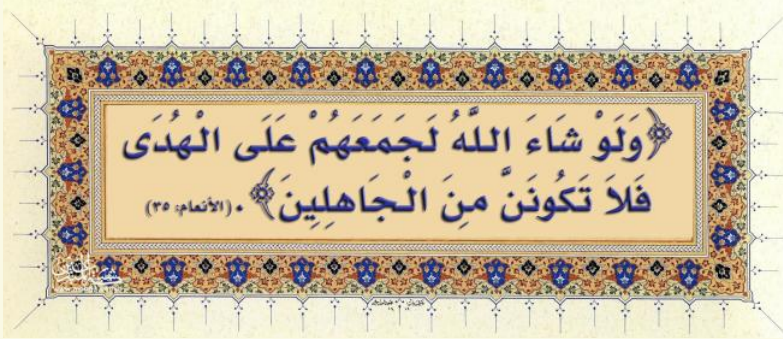 ﴿وَلَوْ شَاءَ اللَّهُ لَجَمَعَهُمْ عَلَى الْهُدَى
فَلاَ تَكُونَنَّ مِنَ الْجَاهِلِينَ﴾ . (الأنعام: ٣٥)